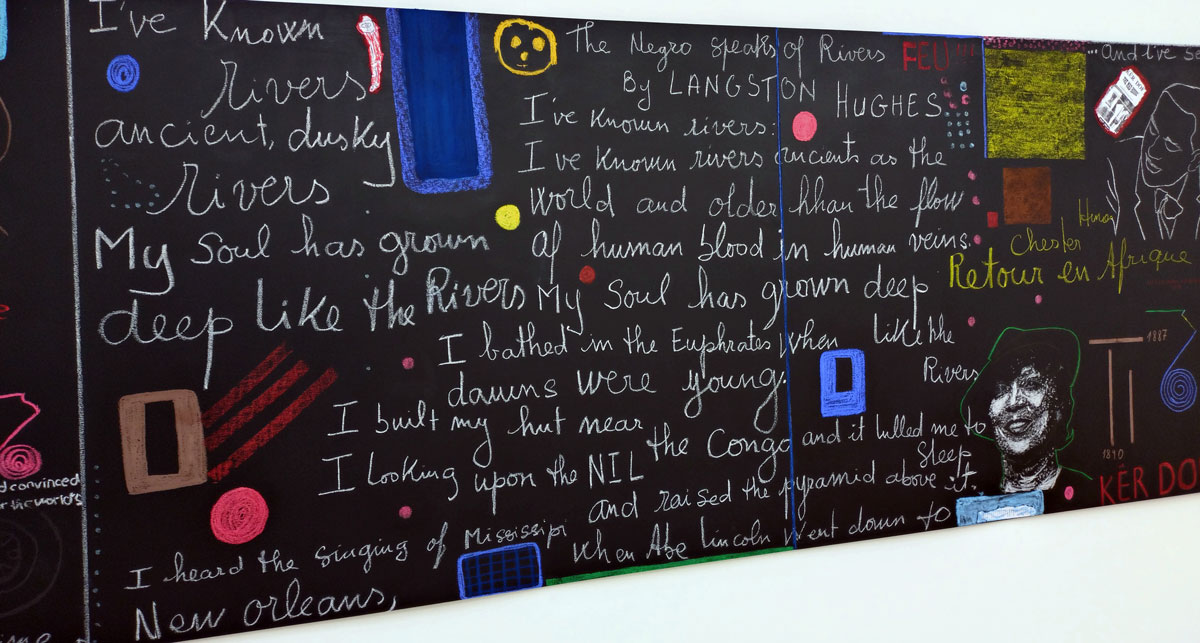 I've Known
rivers
ancient, dusky
rivers
My Soul has grown
deep like the Rivers
The Negro speaks of Rivers
By LANGSTON HUGHES
I've known rivers:
I've known rivers ancients as the
world and older hhan the flow
of human blood in human veins.
My Soul has grown deep
like the
Rivers
I bathed in the Euphrates when
dawns were young.
I built my hut near
the Congo and it lulled me to
Sleep
I Looking upon the NIL
and raised the pyramid above it.
I heard the singing of Mississipi
when Abe Lincoln went down to
New orleans,
FEU!!!
...And I've
Chester
Retour en Afrique
1887
1890
KËR DO
d convinced
r the world's